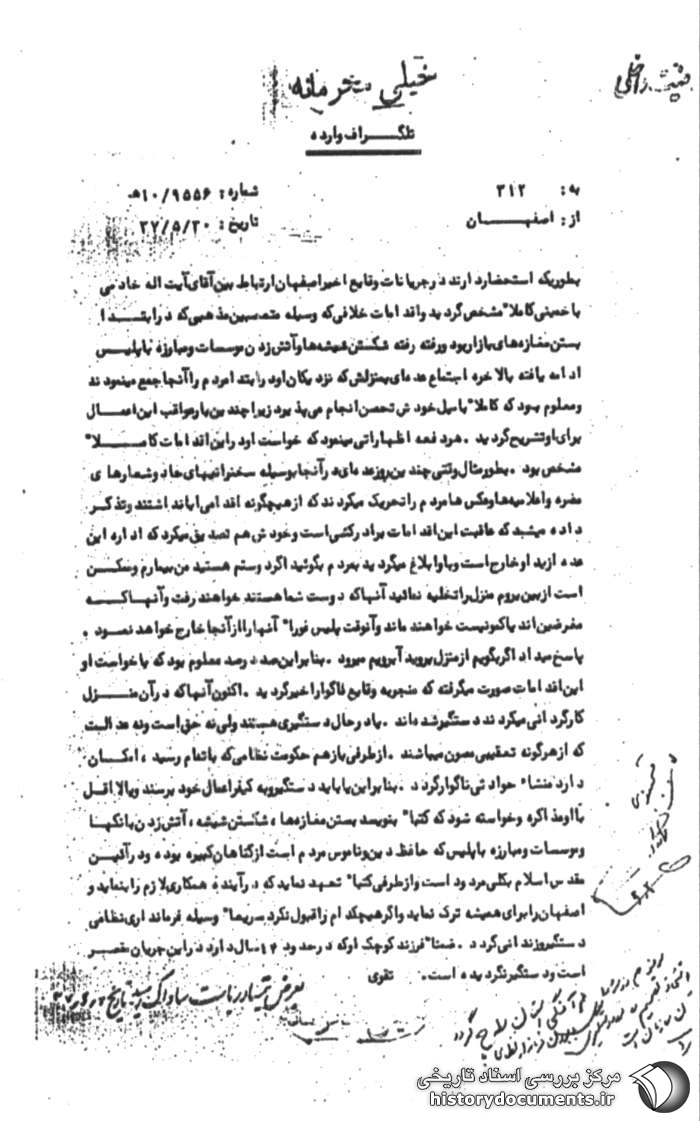 خیلی محرمانه
تلگراف وارده
به: ۳۱۲
شماره: ۱۰/۹۵۵۶ه
از: اصفهان
تاریخ: ۳۷/۵/۳۰
بطوریکه استحضار دارند در جریانات وقایع اخیر اصفهان ارتباط بین آقای آیت اله خادمی
با خمینی کاملا" مشخص گردید و اقدامات خلافی که وسیله متعصبین مذهبی که در ابتدا
بستن مغازه های بازار بود و رفته رفته شکستن شیشه ها و آتش زدن موسسات و مبارزه با پلیس
ادامه یافته بالاخره اجتماع عده ای بمنزلش که نزدیکان او در ابتدا مردم را آنجا جمع مینمودند
و معلوم بود که کاملا" با میل خودش تحصن انجام می پذیرد زیرا چندین بار عواقب این اعمال
برای او تشریح گردید . هر دفعه اظهاراتی مینمود که خواست او در این اقدامات کاملا"
مشخص بود . بطور مثال وقتی چندین روز عده ای در آنجا بوسیله سخنرانیهای حاد و شعارهای
مضره و اعلامیه ها و عکس ها مردم را تحریک میکردند که از هیچگونه اقدامی ابا نداشتند و تذکر
داده میشد که عاقبت این اقدامات برادرکشی است و خودش هم تصدیق میکرد که اداره این
عده از ید او خارج است و باو ابلاغ میگردید بمردم بگوئید اگر دوستم هستید من بیمارم و ممکن
است از بین بروم منزل را تخلیه نمائید آنها که دوست شما هستند خواهند رفت و آنها که
مغرضین اند یا کمونیست خواهند ماند و آنوقت پلیس فورا" آنها را از آنجا خارج خواهد نمود .
پاسخ میداد اگر بگویم از منزل بروید آبرویم میرود . بنابراین صد در صد معلوم بود که با خواست او
این اقدامات صورت میگرفته که منجر به وقایع ناگوار اخیر گردید . اکنون آنها که در آن منزل
کارگردانی میکردند دستگیر شده اند . یا در حال دستگیری هستند ولی نه حق است و نه عدالت
که از هرگونه تعقیبی مصون میباشند . از طرفی باز هم حکومت نظامی که باتمام رسید ، امکان
دارد منشاء حوادثی ناگوار گردد . بنابراین یا باید دستگیر و به کیفر اعمال خود برسند و یا لااقل
با او مذاکره و خواسته شود که کتبا" بنویسد بستن مغازه ها ، شکستن شیشه ، آتش زدن بانکها
و موسسات و مبارزه با پلیس که حافظ دین و ناموس مردم است از گناهان کبیره بوده و در آئین
مقدس اسلام بکلی مردود است و از طرفی کتبا" تعهد نماید که در آینده همکاری لازم را بنماید و
اصفهان را برای همیشه ترک نماید و اگر هیچکدام را قبول نکرد سریعا" وسیله فرمانداری نظامی
دستگیر و زندانی گردد . ضمنا" فرزند کوچک او که در حدود ۱۴ سال دارد در این جریان مقصر
است و دستگیر نگردیده است . تقوی
بعرض تیمسار ریاست ساواک رسید
مرکز بررسی اسناد تاریخی
historydocuments.ir